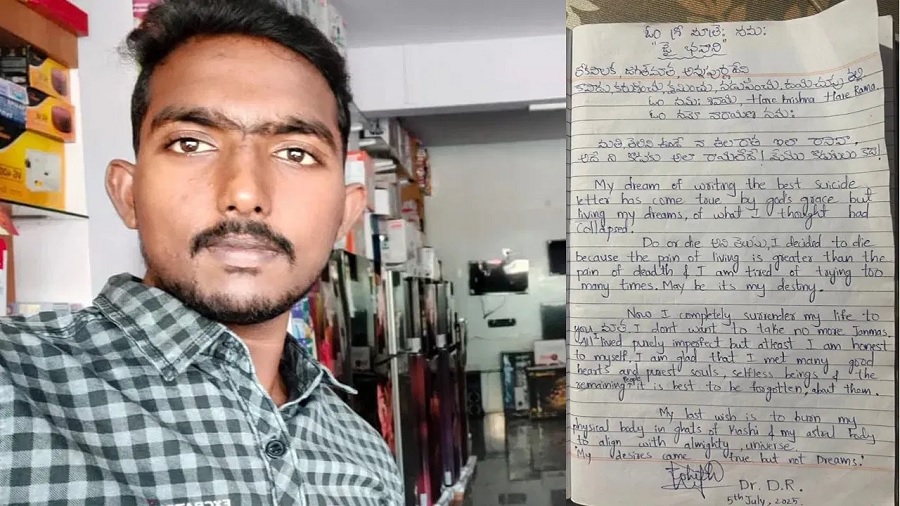 ఓం శ్రీ మాత్రే నమః
"జై భవాని"
జగన్మాత, అన్నపూర్ణ దేవి
ఓం నమః శివాయ, Hare krishna Hare Rama.
ఓం నమో నారాయణ నమః
My dream of writing the best suicide
letter has come true by god's grace but
living my dreams, of what I thought had
collapsed.
Do or die అని తెలుసు, I decided to die
because the pain of living is greater than the
pain of death & I am tired of trying too
many times. May be its my destiny.
Now I completely surrender my life to
you, I dont want to take no more Janmas.
lived purely imperfect but atleast I am honest
to myself, I am glad that I met many good
hearts and purest souls, selfless beings & the
remaining it is best to be forgotten, about them.
My last wish is to burn my
physical body in ghats of Kashi & my astral body
to align with almighty universe.
"My desires came true but not Dreams."
Dr. D.R.
5th July, 2025.